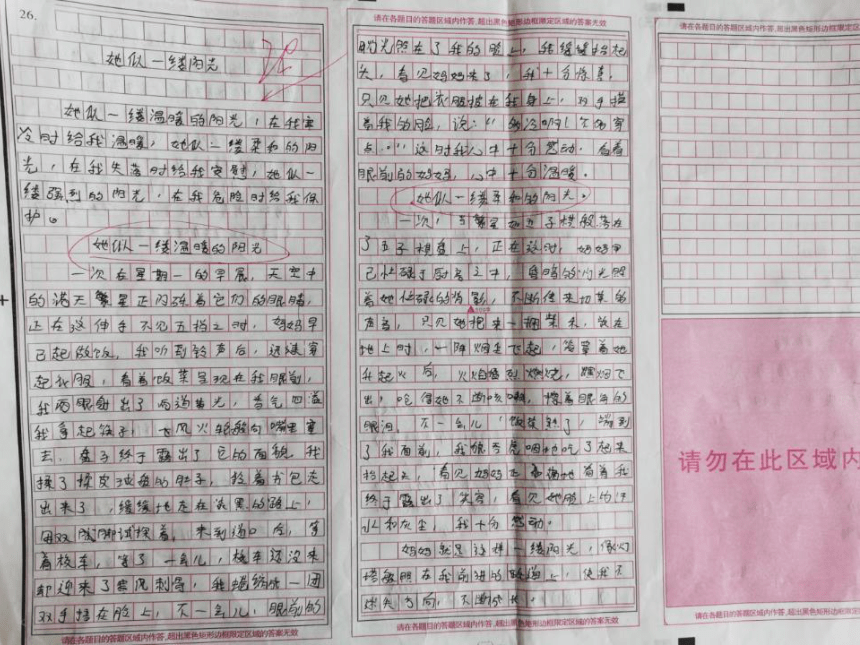 26.
她似一缕阳光
她似一缕温暖的阳光，在我寒
冷时给我温暖，她似一缕柔和的阳
光，在我失落时给我安慰，她似一
缕强烈的阳光，在我危险时给我保
护。
她似一缕温暖的阳光
一次在星期一的早晨，天空中
的满天繁星正闪烁着它们的眼睛，
正在这伸手不见五指之时，妈妈早
已起做饭，我听到铃声后，迅速穿
起衣服，看着饭菜呈现在我眼前，
我两眼射出了两道光，香气四溢
我拿起筷子，飞风火般向嘴里塞
去，盘子终于露出了它的面貌，我
摸了摸皮球般的肚子，拎着书包走
出来了，缓缓地走在漆黑的路上，
用双脚试探着，来到路口后，等
着校车，等了一会儿，校车还没来
却迎来了寒风刺骨，我蜷缩成一团
双手捂在脸上，不一会儿，眼前的
请在各题目的答题区域内作答，超出黑色矩形边框限定区域的答案无效
请在各题目的答题区域内作答，超出黑色矩形边框限定区域的答案无效
阳光照在了我的脸上，我缓缓抬起
头，看见妈妈来了，我十分惊喜，
只见她把衣服披在我身上，双手捂
着我的脸，说："多冷啊！欠多穿
点。"这时我心中十分感动。看着
眼前的妈妈，心中十分温暖。
她似一缕柔和的阳光。
一次，繁星如五子棋般落在
了五子棋盘上，正在这时，妈妈早
已忙碌于厨房之中，昏暗的灯光照
着她忙碌的背影，不断传来切菜的
声音，只见她抱来一捆柴来，放在
地上时，一阵烟尘飞起，
升起火后，火焰猛烈燃烧，烟飞
出，呛得她不断咳嗽，擦着眼里的
眼泪，不一会儿，饭菜熟了，端到
了我面前，我狼吞虎咽地吃了起来
抬起头，看见妈妈正看着我
终于露出了笑容，看见她脸上的汗
水和灰尘，我十分感动。
妈妈就是这样一缕阳光，像灯
塔般照在我前进的路上，使我不
迷失方向，不断成长。
请在各题目的答题区域内作答，超出黑色矩形边框限定区域的答案无效
请在各题目的答题区域内作答，超出黑色矩形边框限定区域的答案无
请勿在此区域内
请在各题目的答题区域内作答，超出黑色矩形边框限定区域的答案无